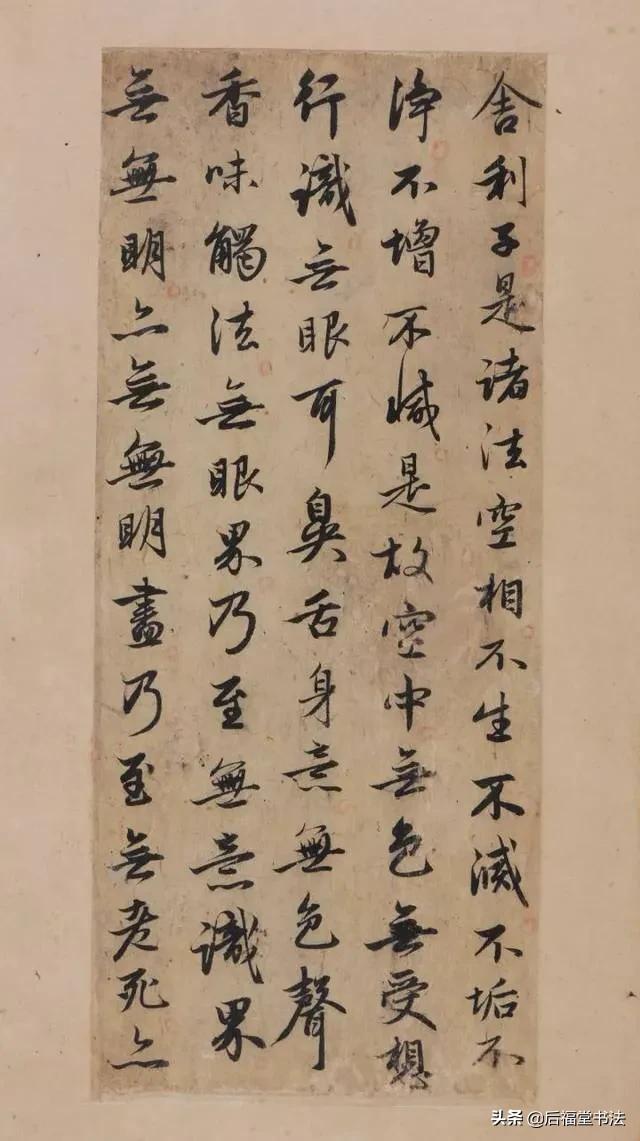 舍利子是诸法空相不生不滅不垢不
淨不增不減是故空中無色無受想
行識無眼耳鼻舌身意無色聲
香味觸法無眼界乃至無意識界
無無明亦無無明盡乃至無老死亦
头条 @后福堂书法